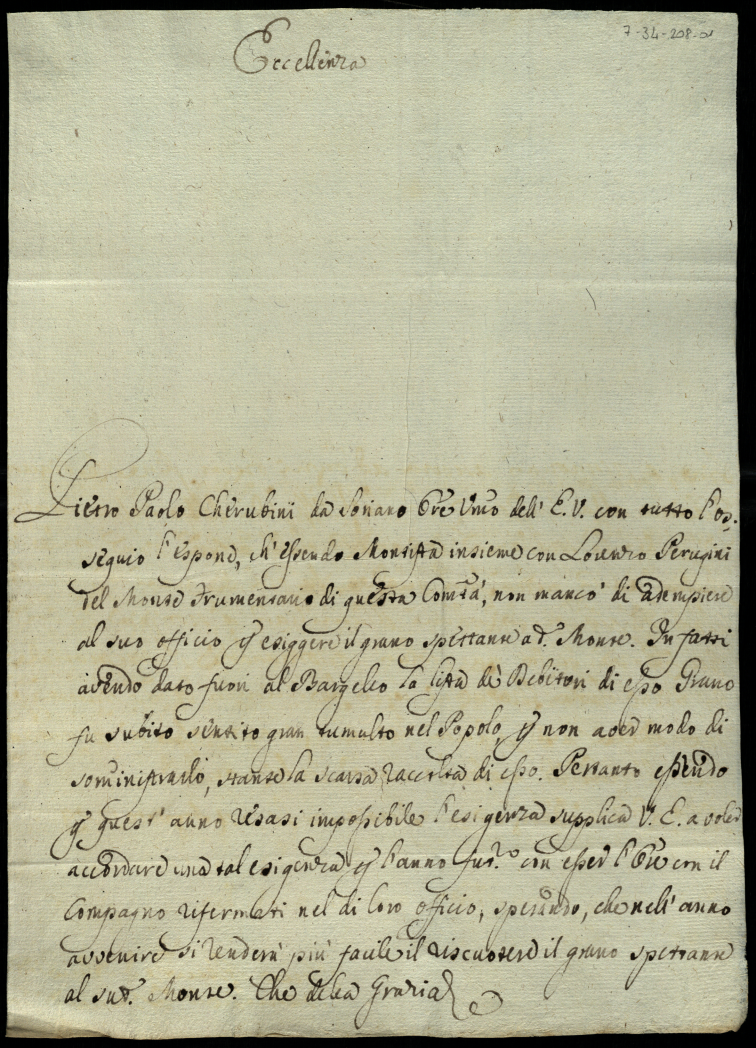 7-34-208-01
Eccellenza
Pietro Paolo Cherubini da Soriano Ore Umo dell' E. V. con tutto l'os-
sequio l'espone, ch'essendo Montista insieme con Lorenzo Perugini
del Monte Frumentario di questa Comtà, non mancò di adempiere
al suo officio p esiggere il grano spettante a d.o Monte. In fatti
avendo dato fuori al Bargello la lista de Debitori di esso Grano
fu subito sentito gran tumulto nel Popolo, p non aver modo di
somministrarlo, stante la scarsa raccolta di esso. Pertanto essendo
p quest'anno resasi impossibile l'esigenza supplica V. E. a voler
accordare una tal esigenza p l'anno fut.o con esser l'Ore con il
Compagno rifermati nel di loro officio, sperando, che nell'anno
avvenire si renderà più facile il riscuotere il grano spettante
al sud.o Monte. Che della Grazia